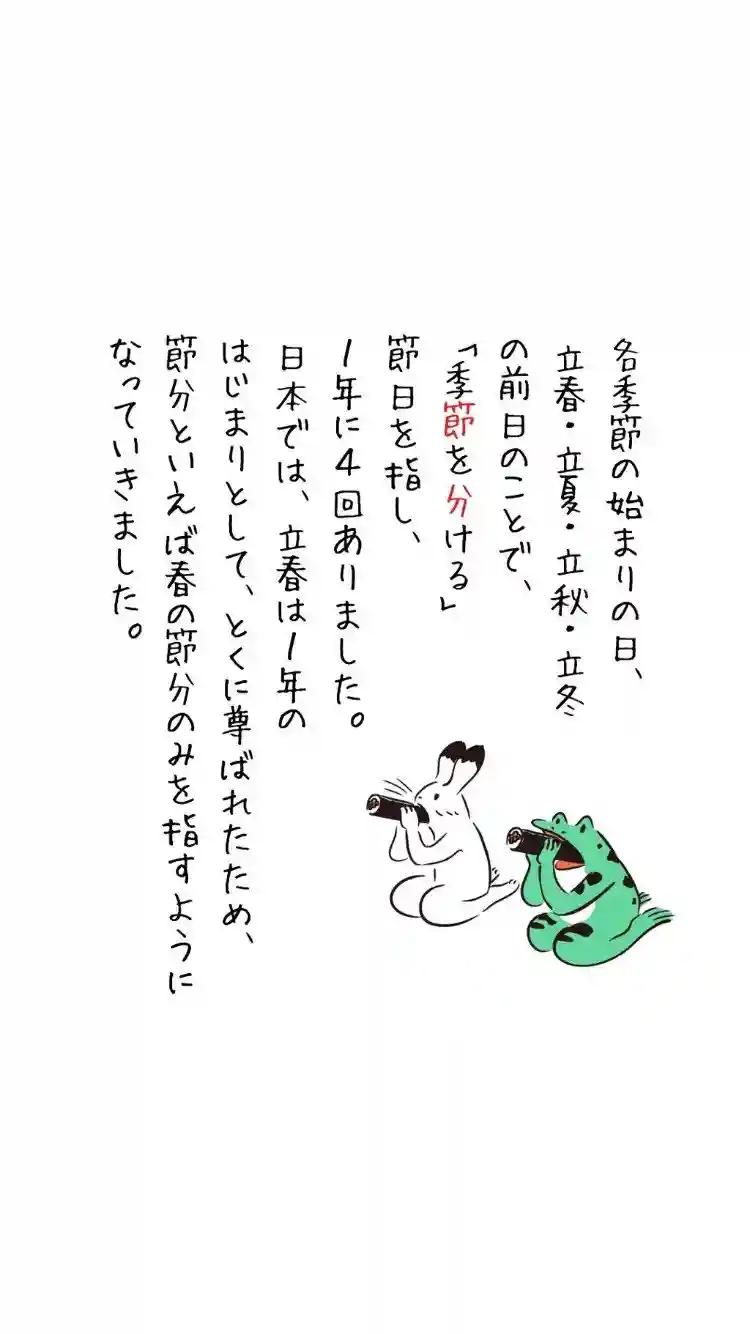 各季節の始まりの日、
立春・立夏・立秋・立冬
の前日のことで、
「季節を分ける」
節日を指し、
1年に4回ありました。
日本では、立春は1年の
はじまりとして、とくに尊ばれたため、
節分といえば春の節分のみを指すように
なっていきました。